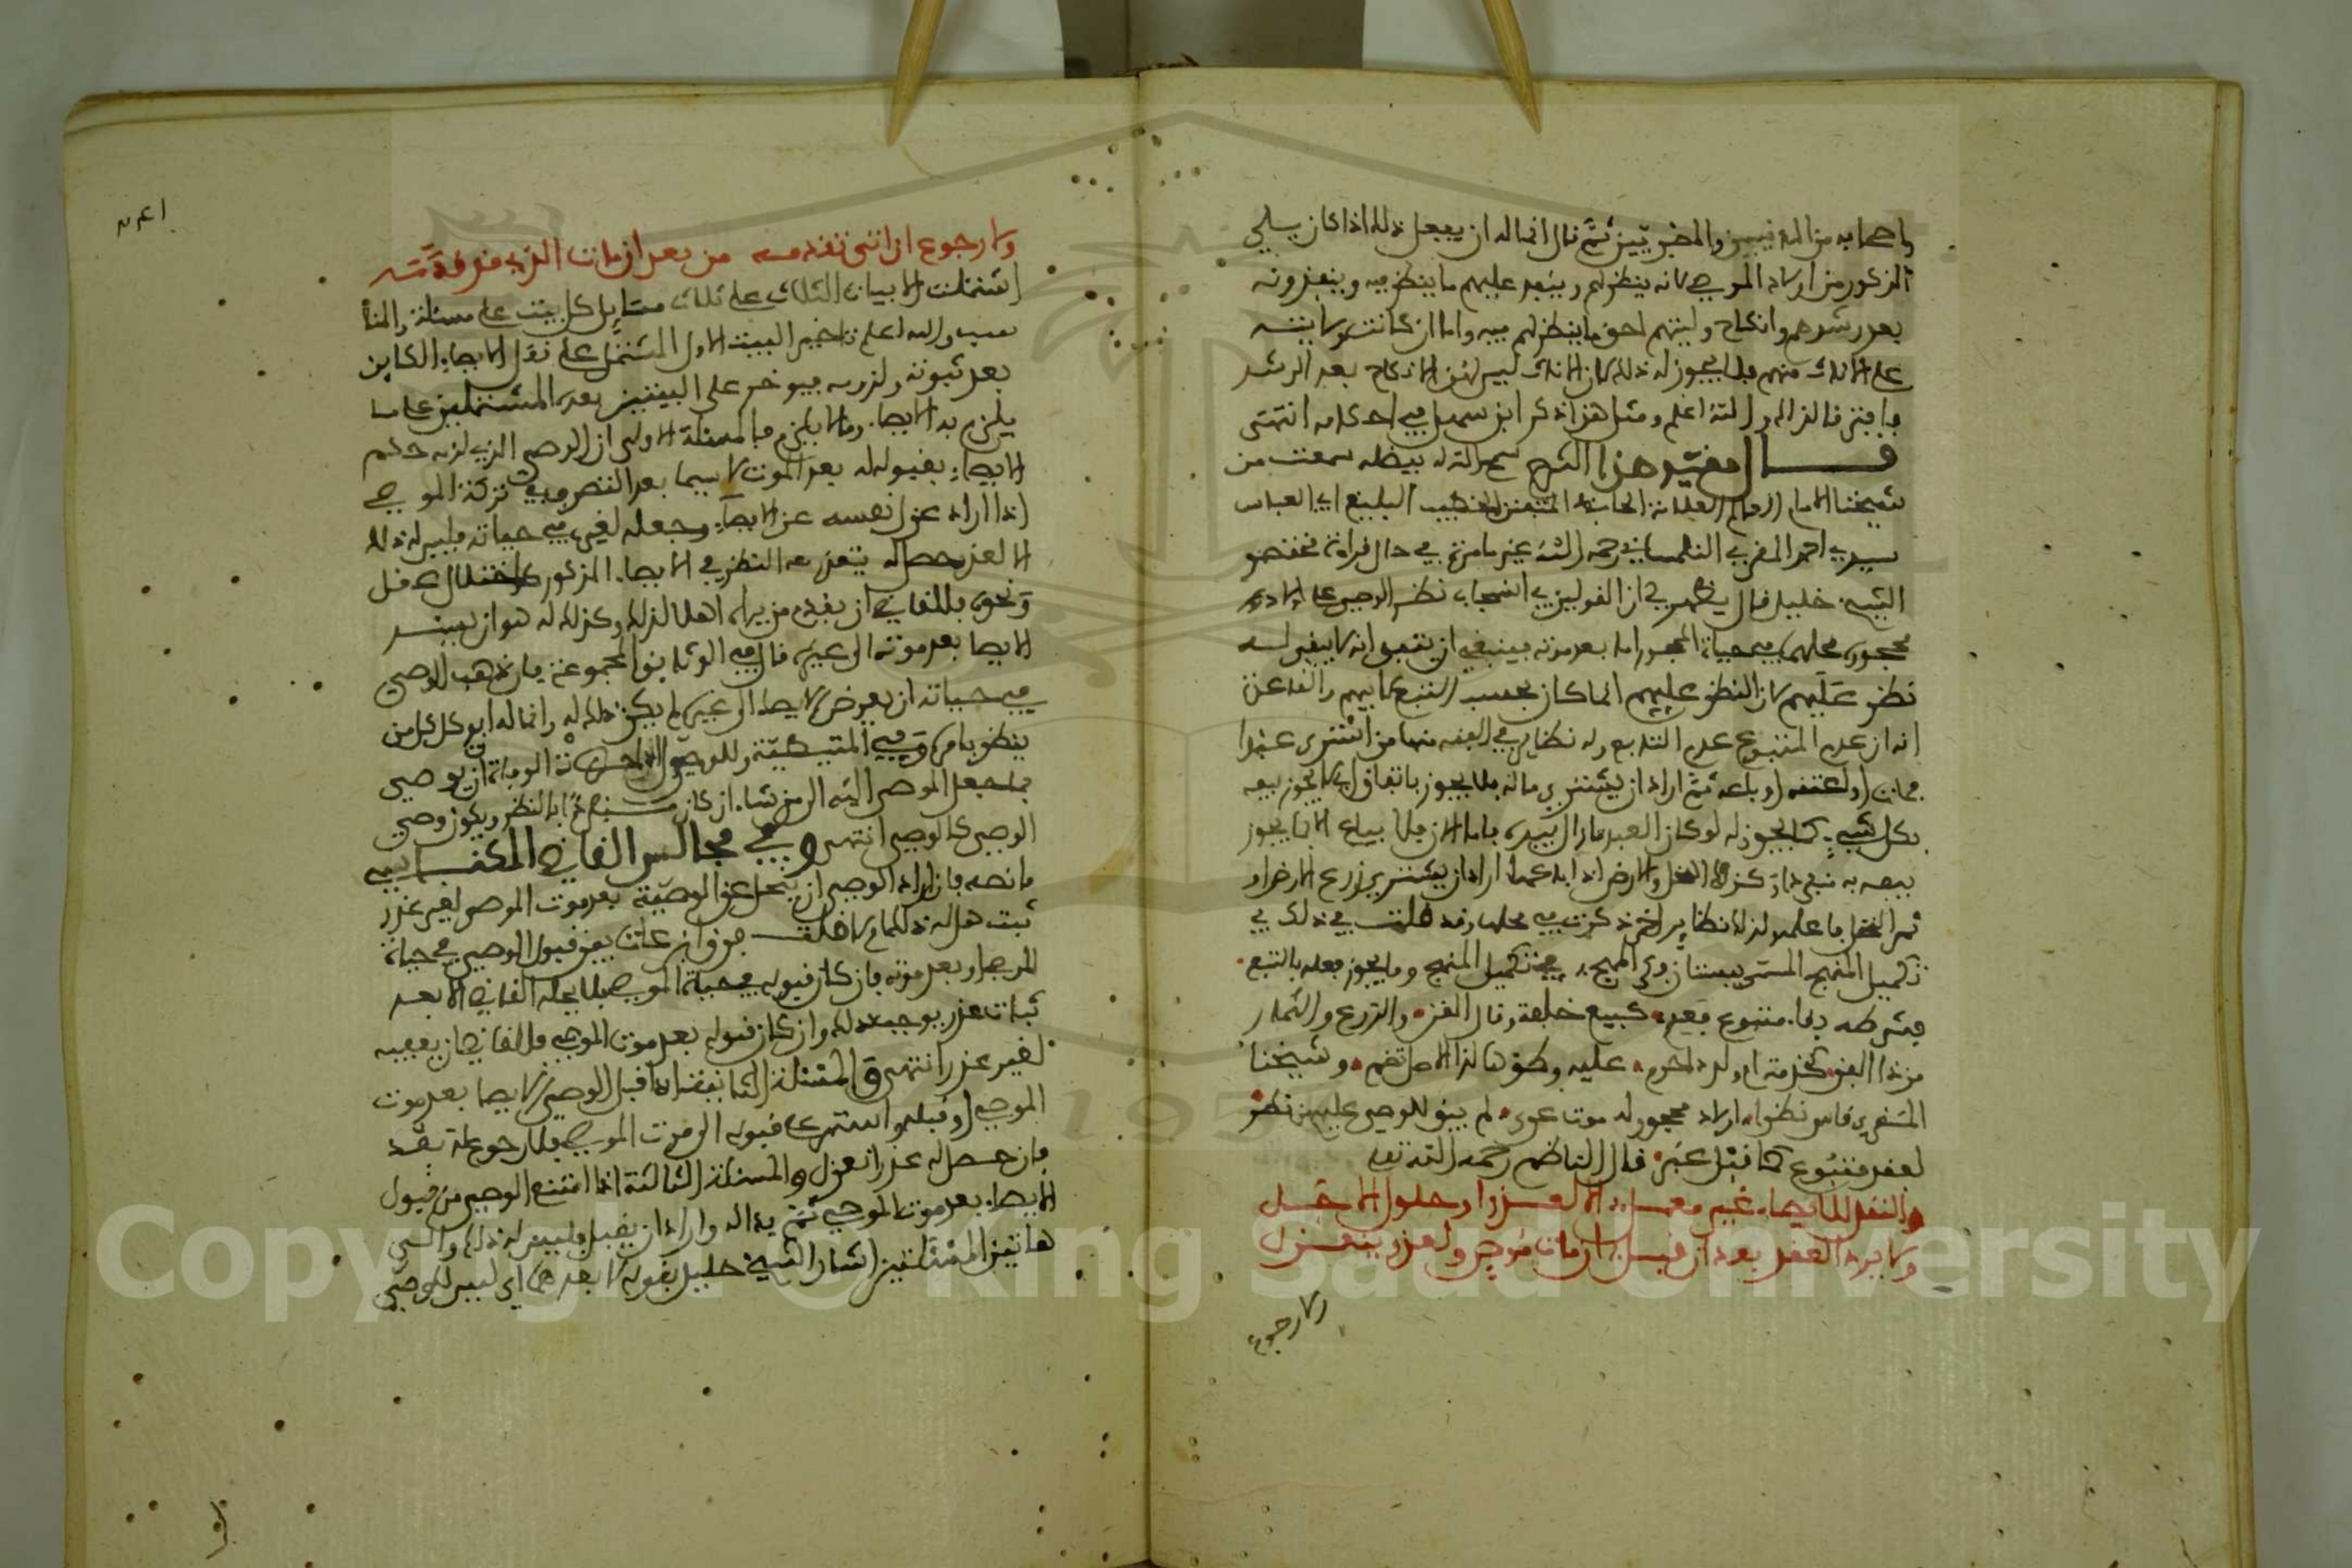 واصحابه من المدنيين والمصريين ثم قال انما له ان يفعل ذلك اذا كان يلي
الذكور من اولاد الموصي لانه ينظر لهم وينفذ عليهم ما ينظر فيه وينفذونه
بعد رشدهم وانكاح وليتهم احق ما ينظر لهم فيه واما ان كانت ولايته
على الاناث منهم فلا يجوز له ذلك لان الاناث ليس لهن الانكاح بعد الرشد
فافترقا لذلك والله اعلم ومثل هذا ذكر ابن سهل في احكامه انتهى
قال مقيد هذا الشرح سمح الله له بفضله سمعت من
شيخنا الامام العلامة الحافظ المتفنن الخطيب البليغ ابي العباس
سيدي احمد المقري التلمساني رحمه الله غير ما مرة في حال قراءة مختصر
الشيخ خليل قال يظهر لي ان القولين في انسحاب نظر الوصي على اولاد
محجوره محلهما في حياة المحجور اما بعد موته فينبغي ان يتفق انه لا يبقى له
نظر عليهم لان النظر عليهم انما كان بحسب التبع لابيهم والقاعدة
انه ان عدم المتبوع عدم التابع وله نظائر في الفقه منها من اشترى عبدا
فمات او اعتقه او باعه ثم اراد ان يشتري ماله فلا يجوز باتفاق اي لا يجوز بيعه
بكل شيء كما يجوز له لو كان العبد مازال بيده واما الان فلا يباع الا بما يجوز
بيعه به
ثمر النخل فاعلمه لذلك نظائر اخر ذكرت في محلها وقد قلت في ذلك في
تكميل المنهج المسمى ببستان فكر المهج في تكميل المنهج وما يجوز فعله بالتبع
فشرطه بقاء متبوع وقع كبيع خلفة ومال القن والزرع والثمار
من ذا الفن كخدمة ام ولد لمحرم عليه وطؤها لذا الاصل تضم وشيخنا
المقري قاس نظرا اولاد محجور له موت عرى لم يبق للوصي عليهم نظر
لفقد متبوع كما قبل عبر قال الناظم رحمه الله تعالى
والنقل للايصاء غير معمل الا لعذر او حلول الاجل
ولا يرد العقد بعد ان قبل ان مات موص ولعذر ينعزل
ولا رجوع
ولا رجوع ان ابى تقدمه من بعد ان مات الذي قد قدمه
اشتملت الابيات الثلاث على ثلاث مسايل كل بيت على مسئلة والمنا
سب والله اعلم تاخير البيت الاول المشتمل على نقل الايصاء الكاين
بعد ثبوته ولزومه فيوخر على البيتين بعده المشتملين على ما
يلزم به الايصاء وما لا يلزم فالمسئلة الاولى ان الوصي الذي لزمه حكم
الايصاء بقبوله له بعد الموت لا سيما بعد التصرف في تركة الموصي
اذا اراد عزل نفسه عن الايصاء وجعله لغيره في حياته فليس له ذلك
الا لعذر حصل له يتعذر معه النظر في الايصاء المذكور كاختلال عقل
ونحوه فللقاضي ان يقدم من يراه اهلا لذلك وكذلك له هو ان يسند
الايصا بعد موته الى غيره قال في الوثايق المجموعة فان ذهب الوصي
في حياته ان يفوض الايصاء الى غيره لم يكن ذلك له وانما له ان يوكل كل من
ينظر بامره وفي المتيطية وللوصي اذا حضرته الوفاة ان يوصي
بما جعل الموصي اليه الى من شاء ان كان مستبدا بالنظر ويكون وصي
الوصي كالوصي انتهى وفي مجالس القاضي المكناسي
ما نصه فان اراد الوصي ان ينحل عن الوصية بعد موت الموصي لغير عذر
ثبت هل له ذلك ام لا قلت فرق ابن عات بين قبول الوصي في حياة
الموصي او بعد موته فان كان قبوله في حياة الموصي فلا يحله القاضي الا بعد
ثبات عذر يوجب ذلك وان كان قبوله بعد موت الموصي فللقاضي ان يعفيه
لغير عذر انتهى والمسئلة الثانية اذا قبل الوصي الايصا بعد موت
الموصي او قبله واستمر على قبوله الى موت الموصي فلا رجوع له بعد
فان حصل له عذر انعزل والمسئلة الثالثة اذا امتنع الوصي من قبول
الايصاء بعد موت الموصي ثم بدا له واراد ان يقبل فليس له ذلك والى
هاتين المسئلتين اشار الشيخ خليل بقوله لا بعدهما اي ليس للوصي